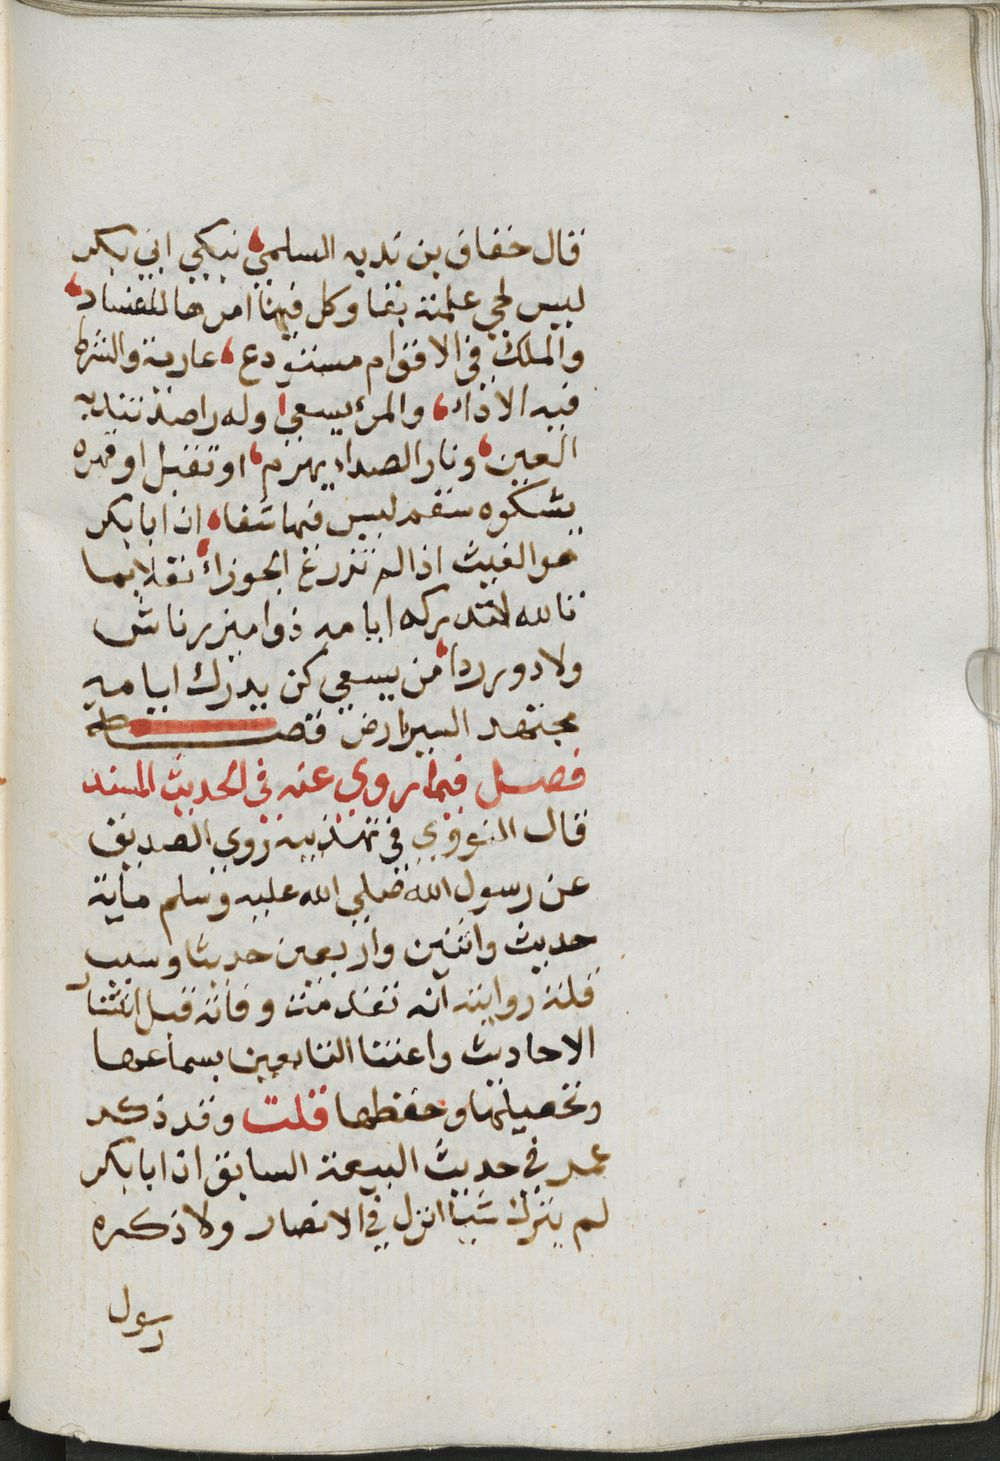 قال خفاف بن ندبه السلمي نبكي ابي بكر
ليس لحي علمته بقا وكل فيهنا امرها للفساد
والملك في الاقوام مستودع عارية والشرط
فيه الاداء والمرء يسعى وله راصد تندبه
العين ونار الصداد يهرم او تقبل او قهره
يشكوه سقم ليس فيها شفا ان ابا بكر
هو الغيث اذا لم تزرع الجوزاء نقلا بما
تالله لا يدركه ايامه ذو اميزر ناش
ولا ذو ردا من يسعي كن يدرك ايامه
مجتهد السير ارض
فصل فيما روي عنه في الحديث المسند
قال النووي في تهذيبه روي الصديق
عن رسول الله صلي الله عليه وسلم ماية
حديث واثنين واربعين حديثا وسبب
قلة روايته انه تقدمت وفاته قبل انتشار
الاحاديث واعتنا التابعين بسماعها
وتحصيلها وحفظها قلت وقد ذكر
عمر في حديث البيعة السابق ان ابا بكر
لم يترك شيا انزل في الانصار ولا ذكره
رسول